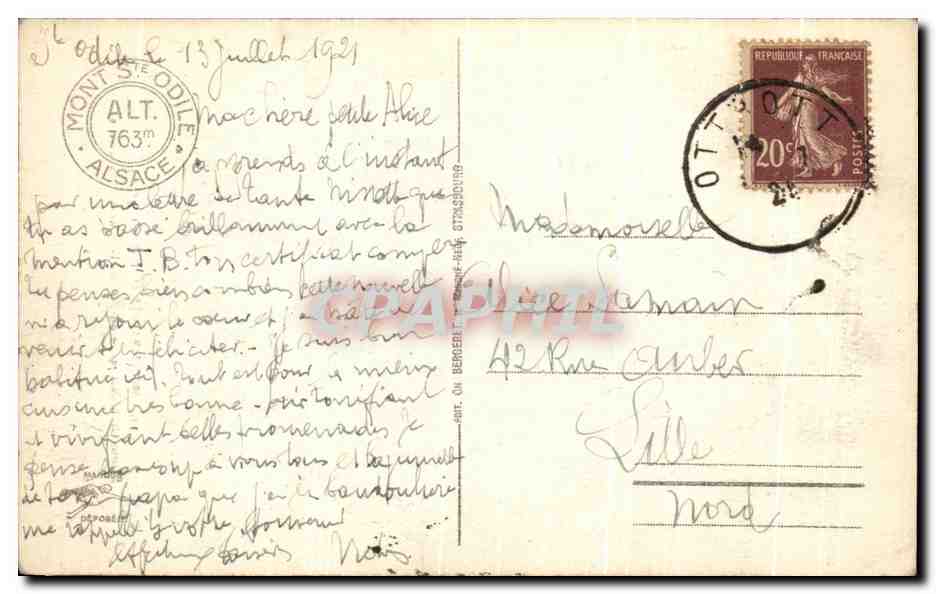 Ste Odile le 13 Juillet 1921
MONT STE ODILE
ALT.
763m
ALSACE
Ma chère petite Alice
J'apprends à l'instant
par une lettre de tante que
tu as passé brillamment avec la
mention T. B. ton certificat
tu penses bien combien cette nouvelle
m'a réjoui le cœur et j'ai
venir te féliciter. - Je suis bien
ici. Tout est pour le mieux
cuisine très bonne - air tonifiant
et vivifiant belles promenades Je
pense beaucoup à vous tous et la
de ton papa que j'ai en bandoulière
me rappelle votre souvenir
Affectueux baisers
MARQUE
DÉPOSÉE
EDIT. CH. BERGERET STRASBOURG
CPAPHIL
RÉPUBLIQUE FRANÇAISE
20c
POSTES
OTTROTT
21
Mademoiselle
Alice Lamain
42 Rue Auber
Lille
Nord